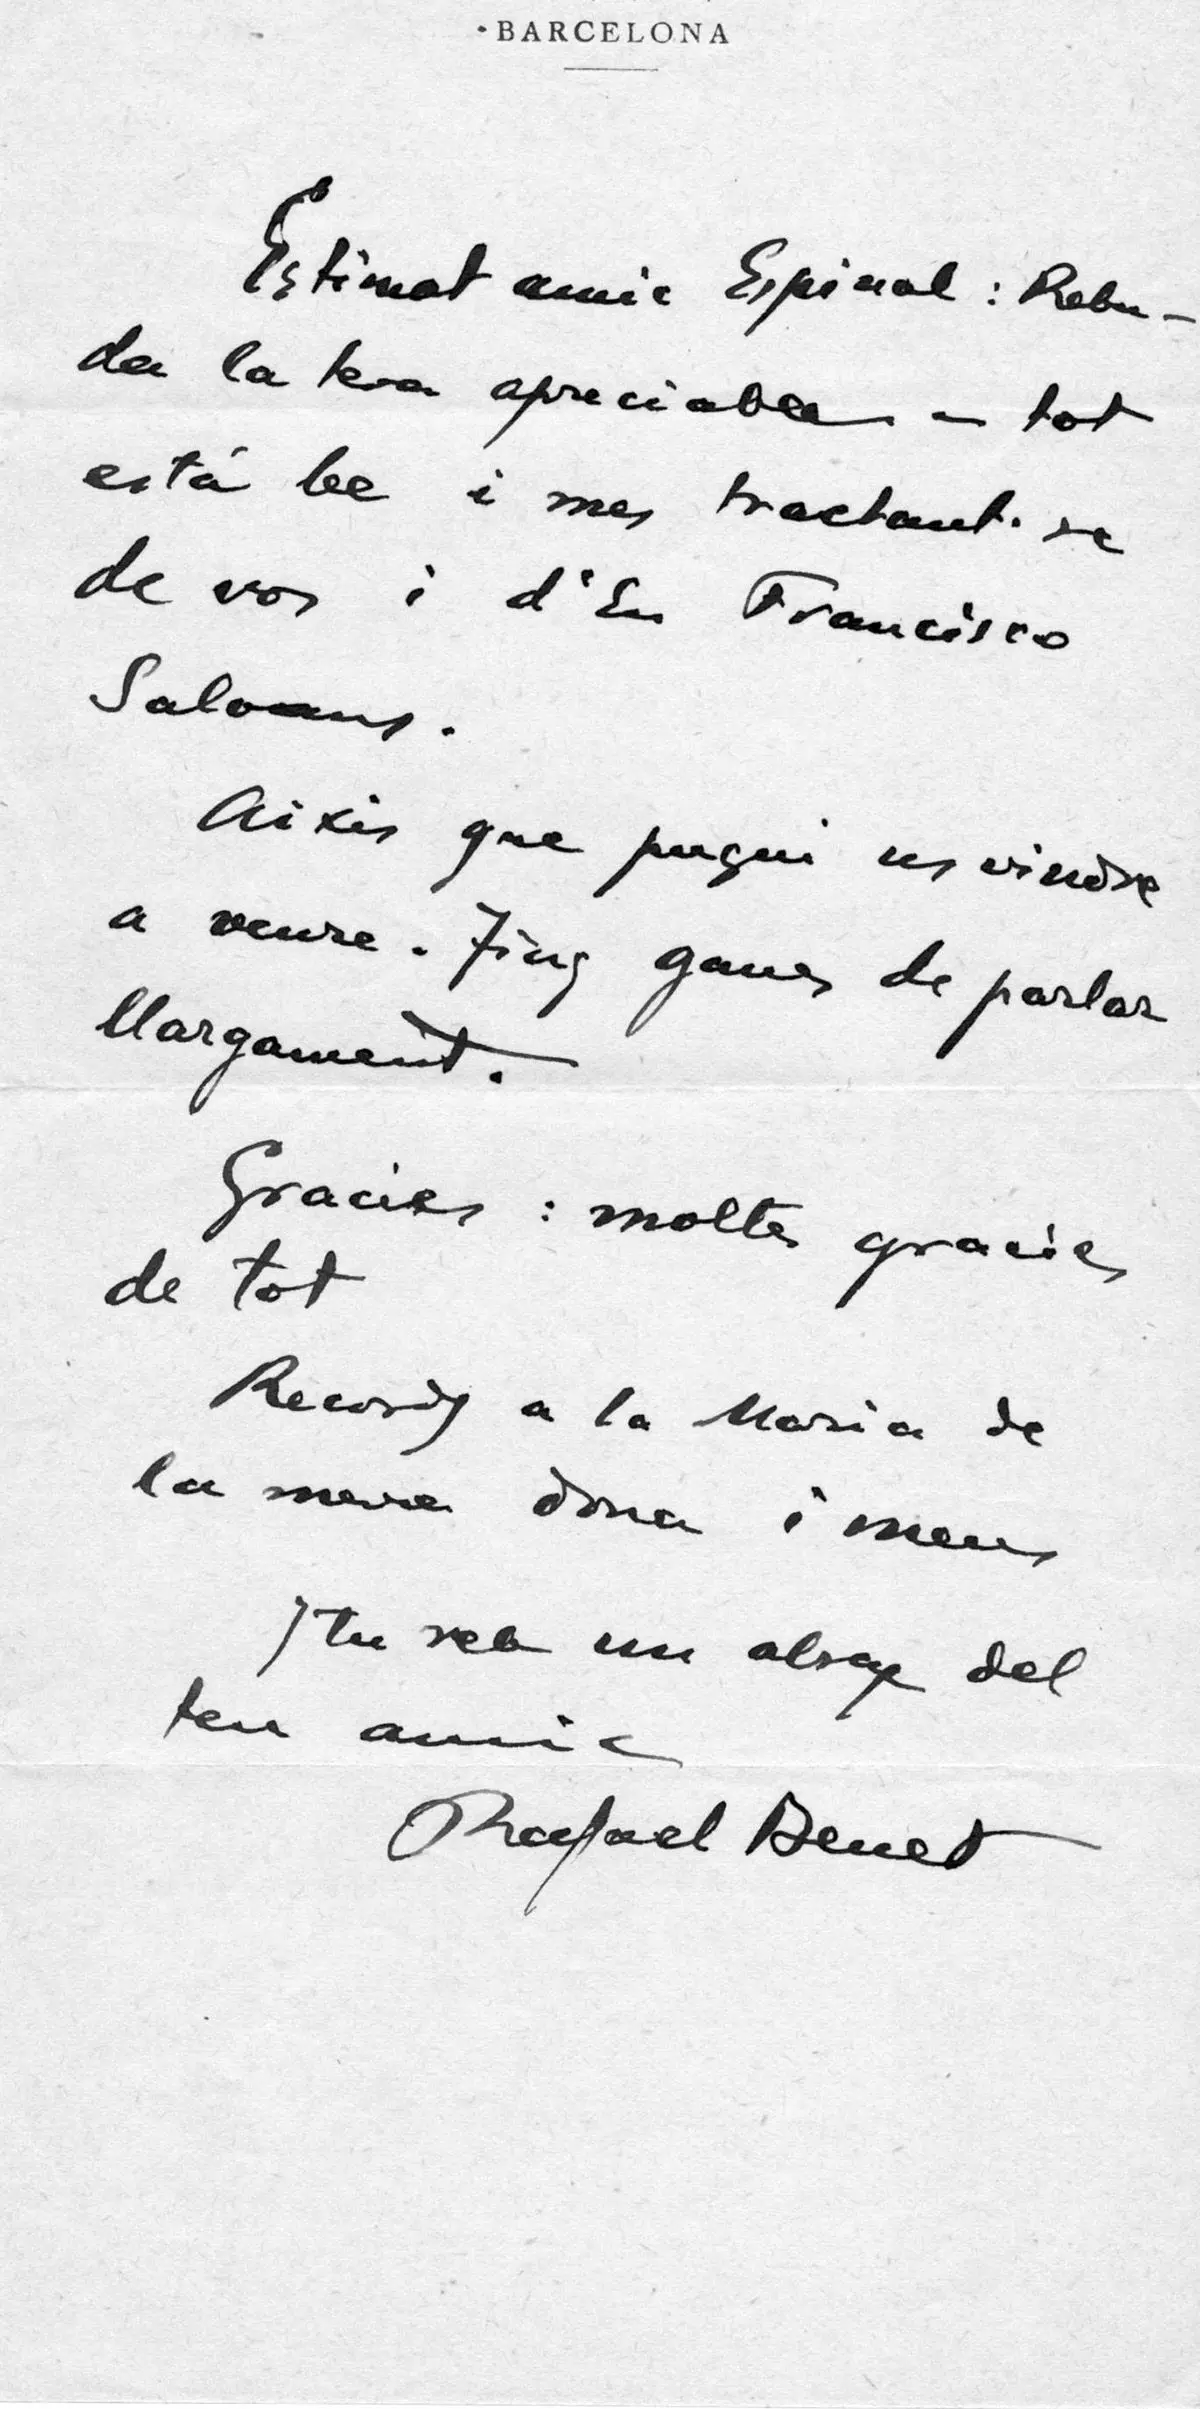 ·BARCELONA
Estimat amic Espinal: Rebu-
da la teva apreciable - tot
está be i mes tractant-se
de vos i d'En Francisco
Salvans.
Aixis que pugui us vindre
a veure. Tinc ganes de parlar
llargament.
Gracies: moltes gracies
de tot
Records a la Maria de
la meva dona i meus
i tu reb un abraç del
teu amic
Rafael Benet